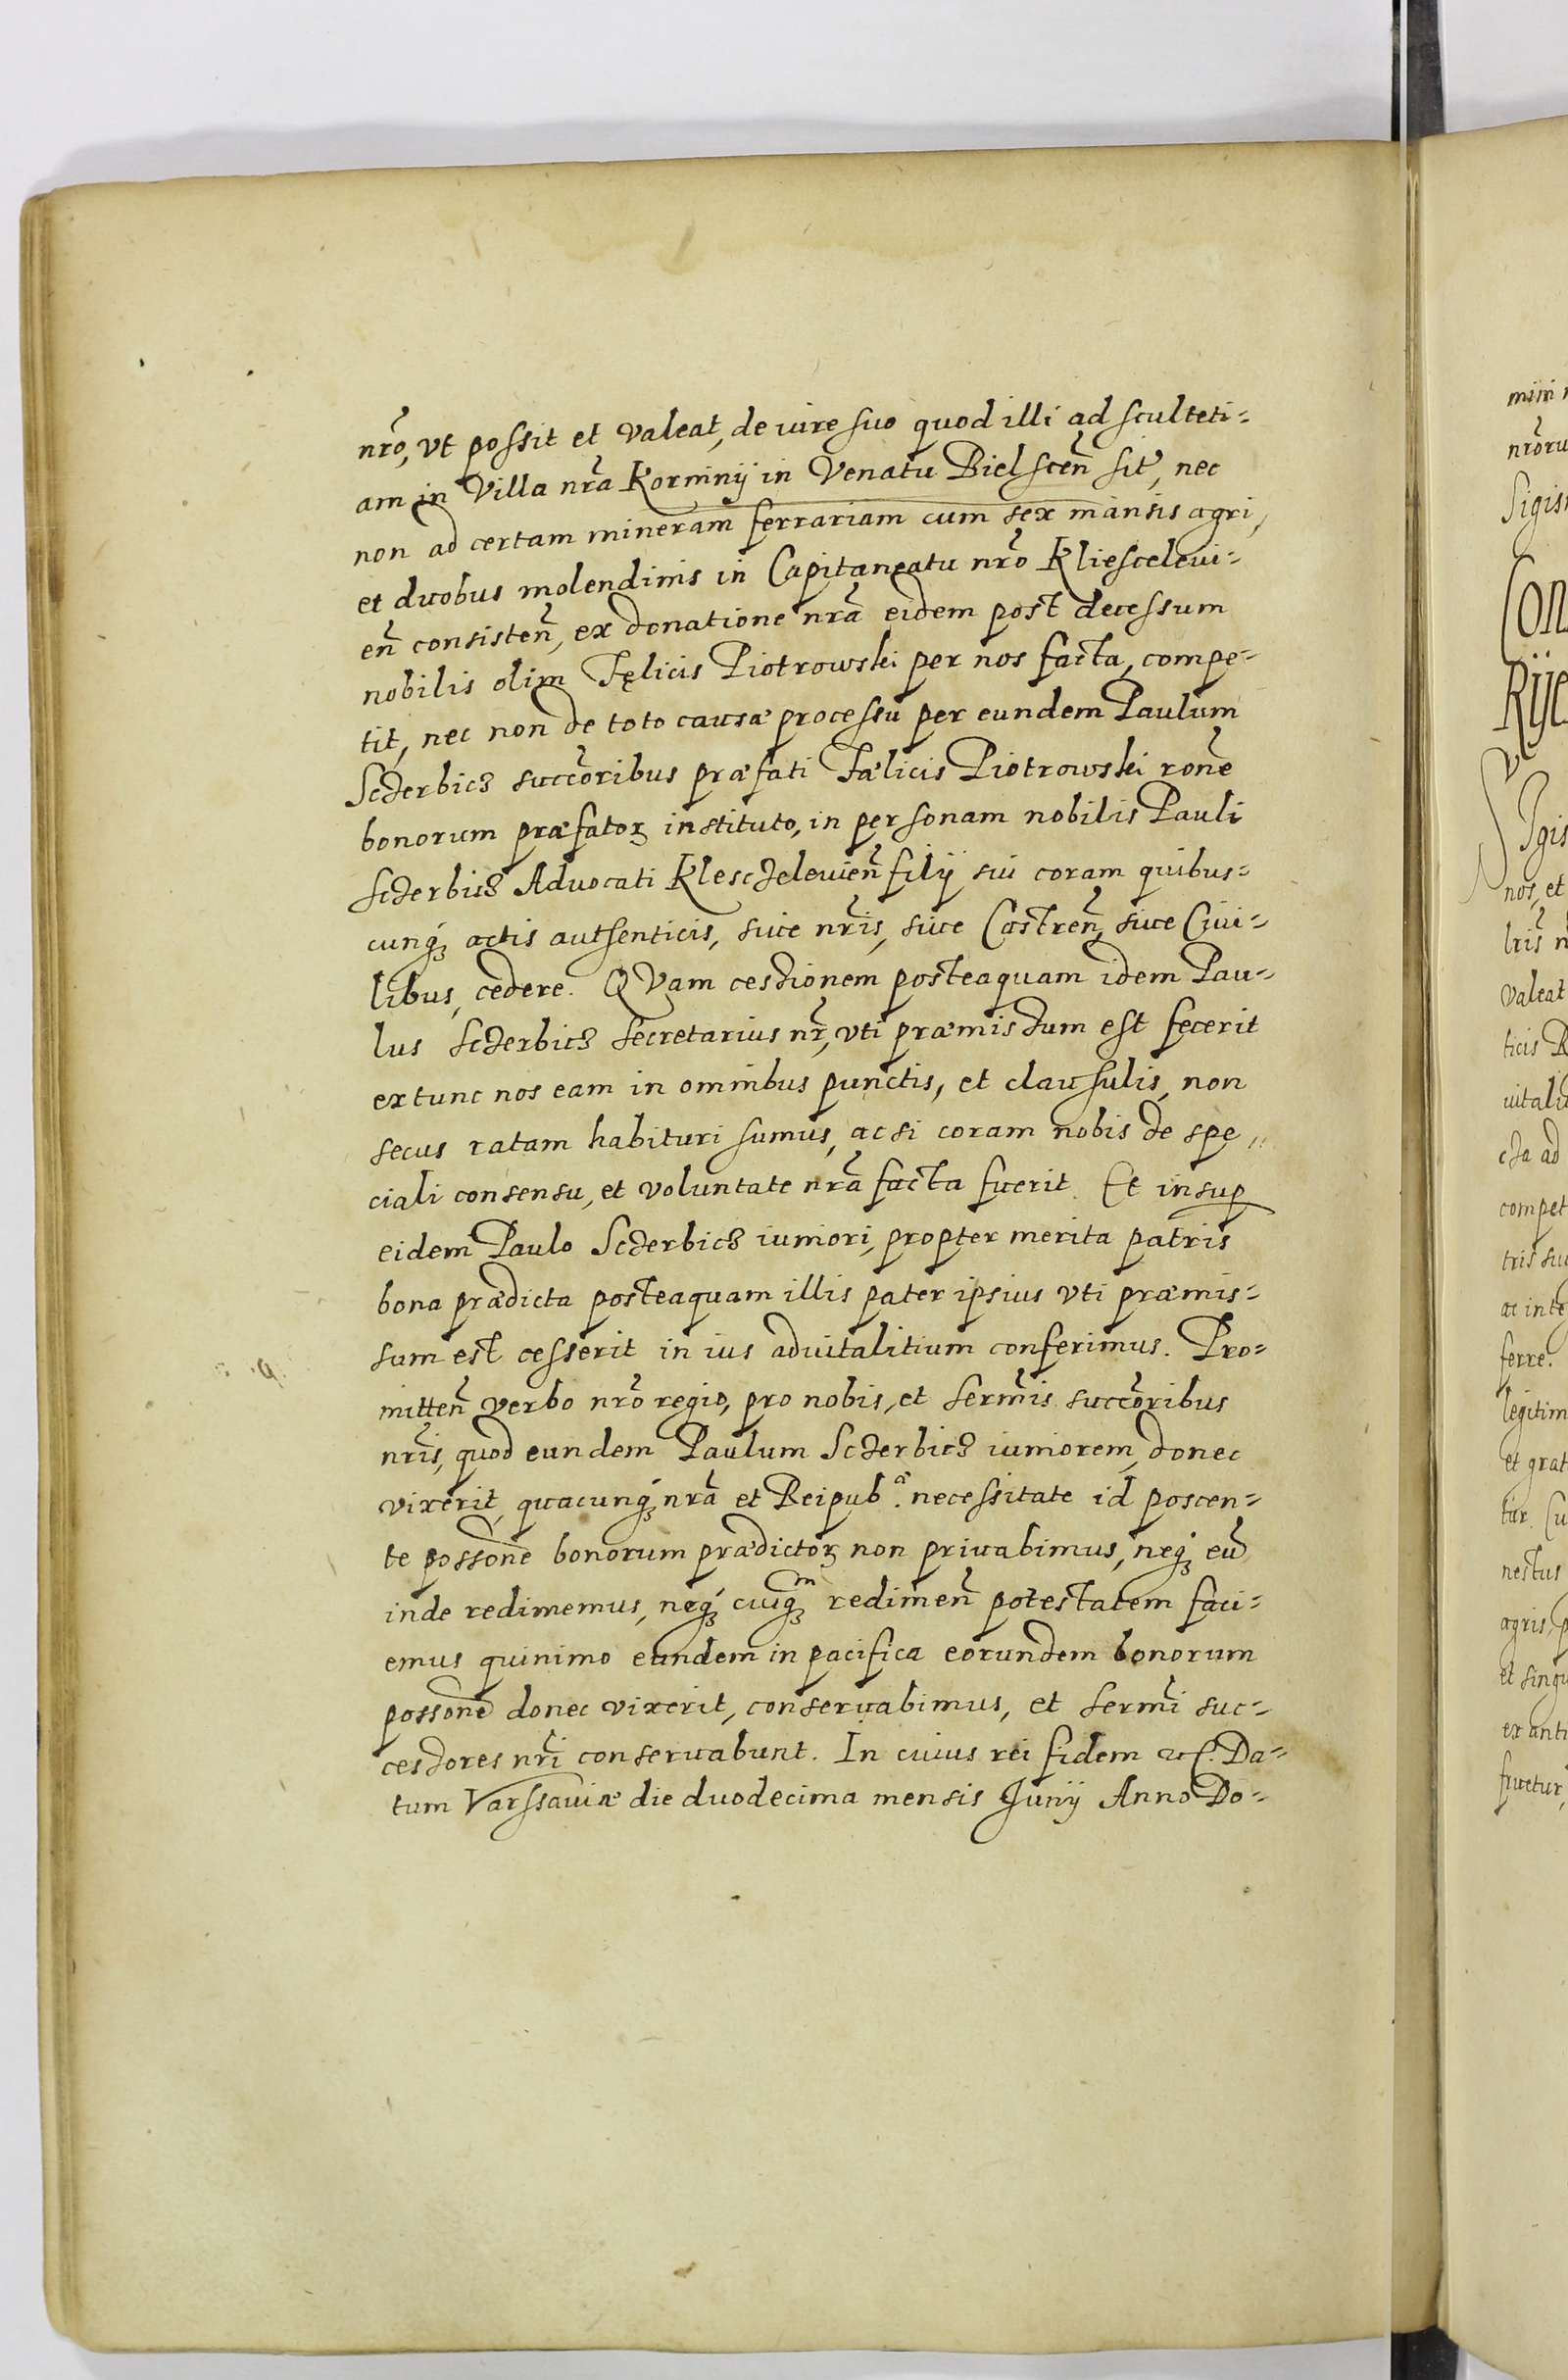 nr̃o, vt possit et valeat, de iure suo quod illi ad sculteti-
am in Villa nr̃a Korninÿ in Venatu Bielsceñ sit, nec
non ad certam mineram ferrariam cum sex mansis agri,
et duobus molendinis in Capitaneatu nr̃o Kliesceleui-
eñ consisteñ, ex donatione nr̃a eidem post decessum
nobilis olim Fęlicis Piotrowski per nos facta, compe-
tit, nec non de toto causæ processu per eundem Paulum
Sczerbicz succ̃oribus præfati Fælicis Piotrowski rõne
bonorum præfatoꝝ instituto, in personam nobilis Pauli
Sczerbicz Aduocati Klesczeleuieñ filÿ sui coram quibus-
cunqꝫ actis autsenticis, siue nr̃is, siue Castreñ, siue Ciui-
libus, cedere. QVam cessionem posteaquam idem Pau-
lus Sczerbicz Secretarius nr̃, vti præmissum est fecerit
ex tunc nos eam in omnibus punctis, et clausulis, non
secus ratam habituri sumus, ac si coram nobis de spe„
ciali consensu, et voluntate nr̃a facta fuerit. Et insuꝑ
eidem Paulo Sczerbicz iuniori, propter merita patris
bona prædicta posteaquam illis pater ipsius vti præmis-
sum est cesserit in ius aduitalitium conferimus. Pro-
mitteñ verbo nr̃o regio, pro nobis, et Serm̃is succ̃oribus
nr̃is, quod eundem Paulum Sczerbicz iuniorem, donec
vixerit, quacunqꝫ nr̃a et Reipubᵃ. necessitate id poscen-
te possõne bonorum prædictoꝝ non priuabimus, neqꝫ eũ
inde redimemus, neqꝫ cuiqꝫᵐ redimeñ potestatem faci-
emus quinimo eundem in pacifica eorundem bonorum
possõne donec vixerit, conseruabimus, et Serm̃i suc-
cessores nr̃i conseruabunt. In cuius rei fidem ꝛc. Da-
tum Varssauiæ die duodecima mensis Junÿ Anno Do-
nr̃oru
Con
nos, et
lr̃is n
valeat
ticis R
compet
ac inte
ferre.
legitim
et grat
tur. Cu
nestus
agris, p
et singu
ex anti
fruetur,